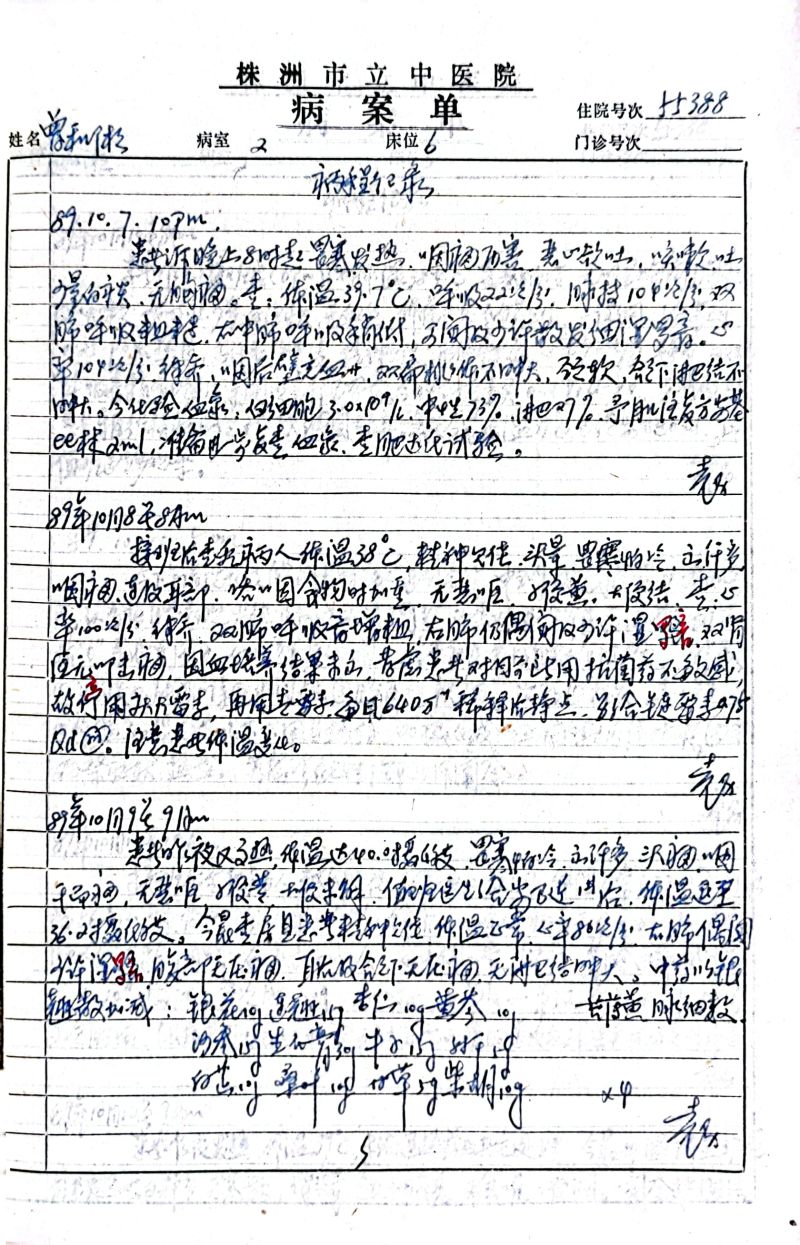 株洲市立中医院
病案单
住院号次 55388
姓名 病室 2 床位 6 门诊号次
病程记录
89.10.7.10pm.
患者诉晚上8时起畏寒发热,咽痛厉害,恶心欲吐,咳嗽,吐
少量白痰,无胸痛。查:体温39.7℃,呼吸22次/分,脉搏104次/分,双
肺呼吸粗糙,右中肺呼吸音稍低,可闻及少许散发细湿罗音。心
率104次/分,律齐,咽后壁充血,双扁桃体不肿大,颈软,颌下淋巴结不
肿大。今化验血象,白细胞3.0x10⁹/L,中性73%,淋巴27%,予肌注复方安基
比林2ml,准备明早复查血象,查肥达氏试验。
袁
89年10月8号8Am
接班后查看病人体温38℃,精神欠佳,头晕,畏寒怕冷,出汗多,
咽痛,连及耳部,吞咽食物时加重,无恶呕,大便结,查:心
率100次/分,律齐,双肺呼吸音增粗,右肺仍偶闻及少许湿罗音,双肾
区无叩击痛,因血培养结果未出,考虑患者对目前所用抗菌药不敏感,
故停用 霉素,再用青霉素,每日640万 稀释后静点,并给链霉素0.75
Qd。注意患者体温变化。
袁
89年10月9号9Am
患者昨夜又高热,体温达40.0摄氏度,畏寒怕冷,出汗多,头痛,咽
干而痛,无恶呕,大便未解,值班医生给 后,体温退至
36.2摄氏度。今晨查房见患者精神欠佳,体温正常,心率86次/分,右肺偶闻
少许湿罗音,腹部无压痛,耳后及颌下无压痛,无淋巴结肿大。中药以银
翘散加减:银花10g 连翘15g 杏仁10g 黄芩10g 苔薄黄 脉细数
沙参15g 生石膏30g 牛子15g
10g 桑叶10g 甘草5g 柴胡10g x4
袁
5